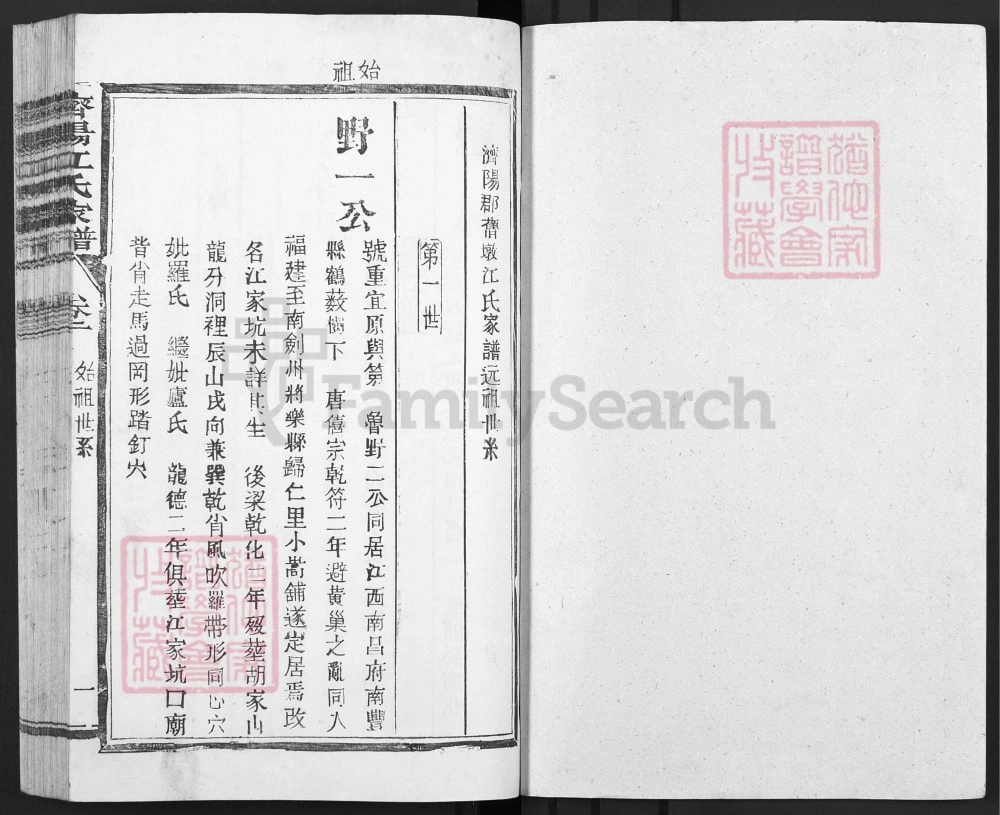 濟陽郡𦾔墩江氏家譜远祖世系
第一世
始祖
野一公
號重宜原與第 魯野二公同居江西南昌府南豐
縣鶴薮樹下 唐僖宗乾符二年避黃巢之亂同人
福建至南劍州將樂縣歸仁里小嵩舖遂定居焉改
名江家坑未詳其生 後梁乾化二年殁塟胡家山
龍丹洞裡辰山戌向兼巽乾肖風吹羅帶形同心穴
妣羅氏 繼妣盧氏 龍德二年俱塟江家坑口廟
背肖走馬過岡形踏釘穴
濟陽江氏家譜
卷一
始祖世系
一
譜學會
家
藏
FamilySearch